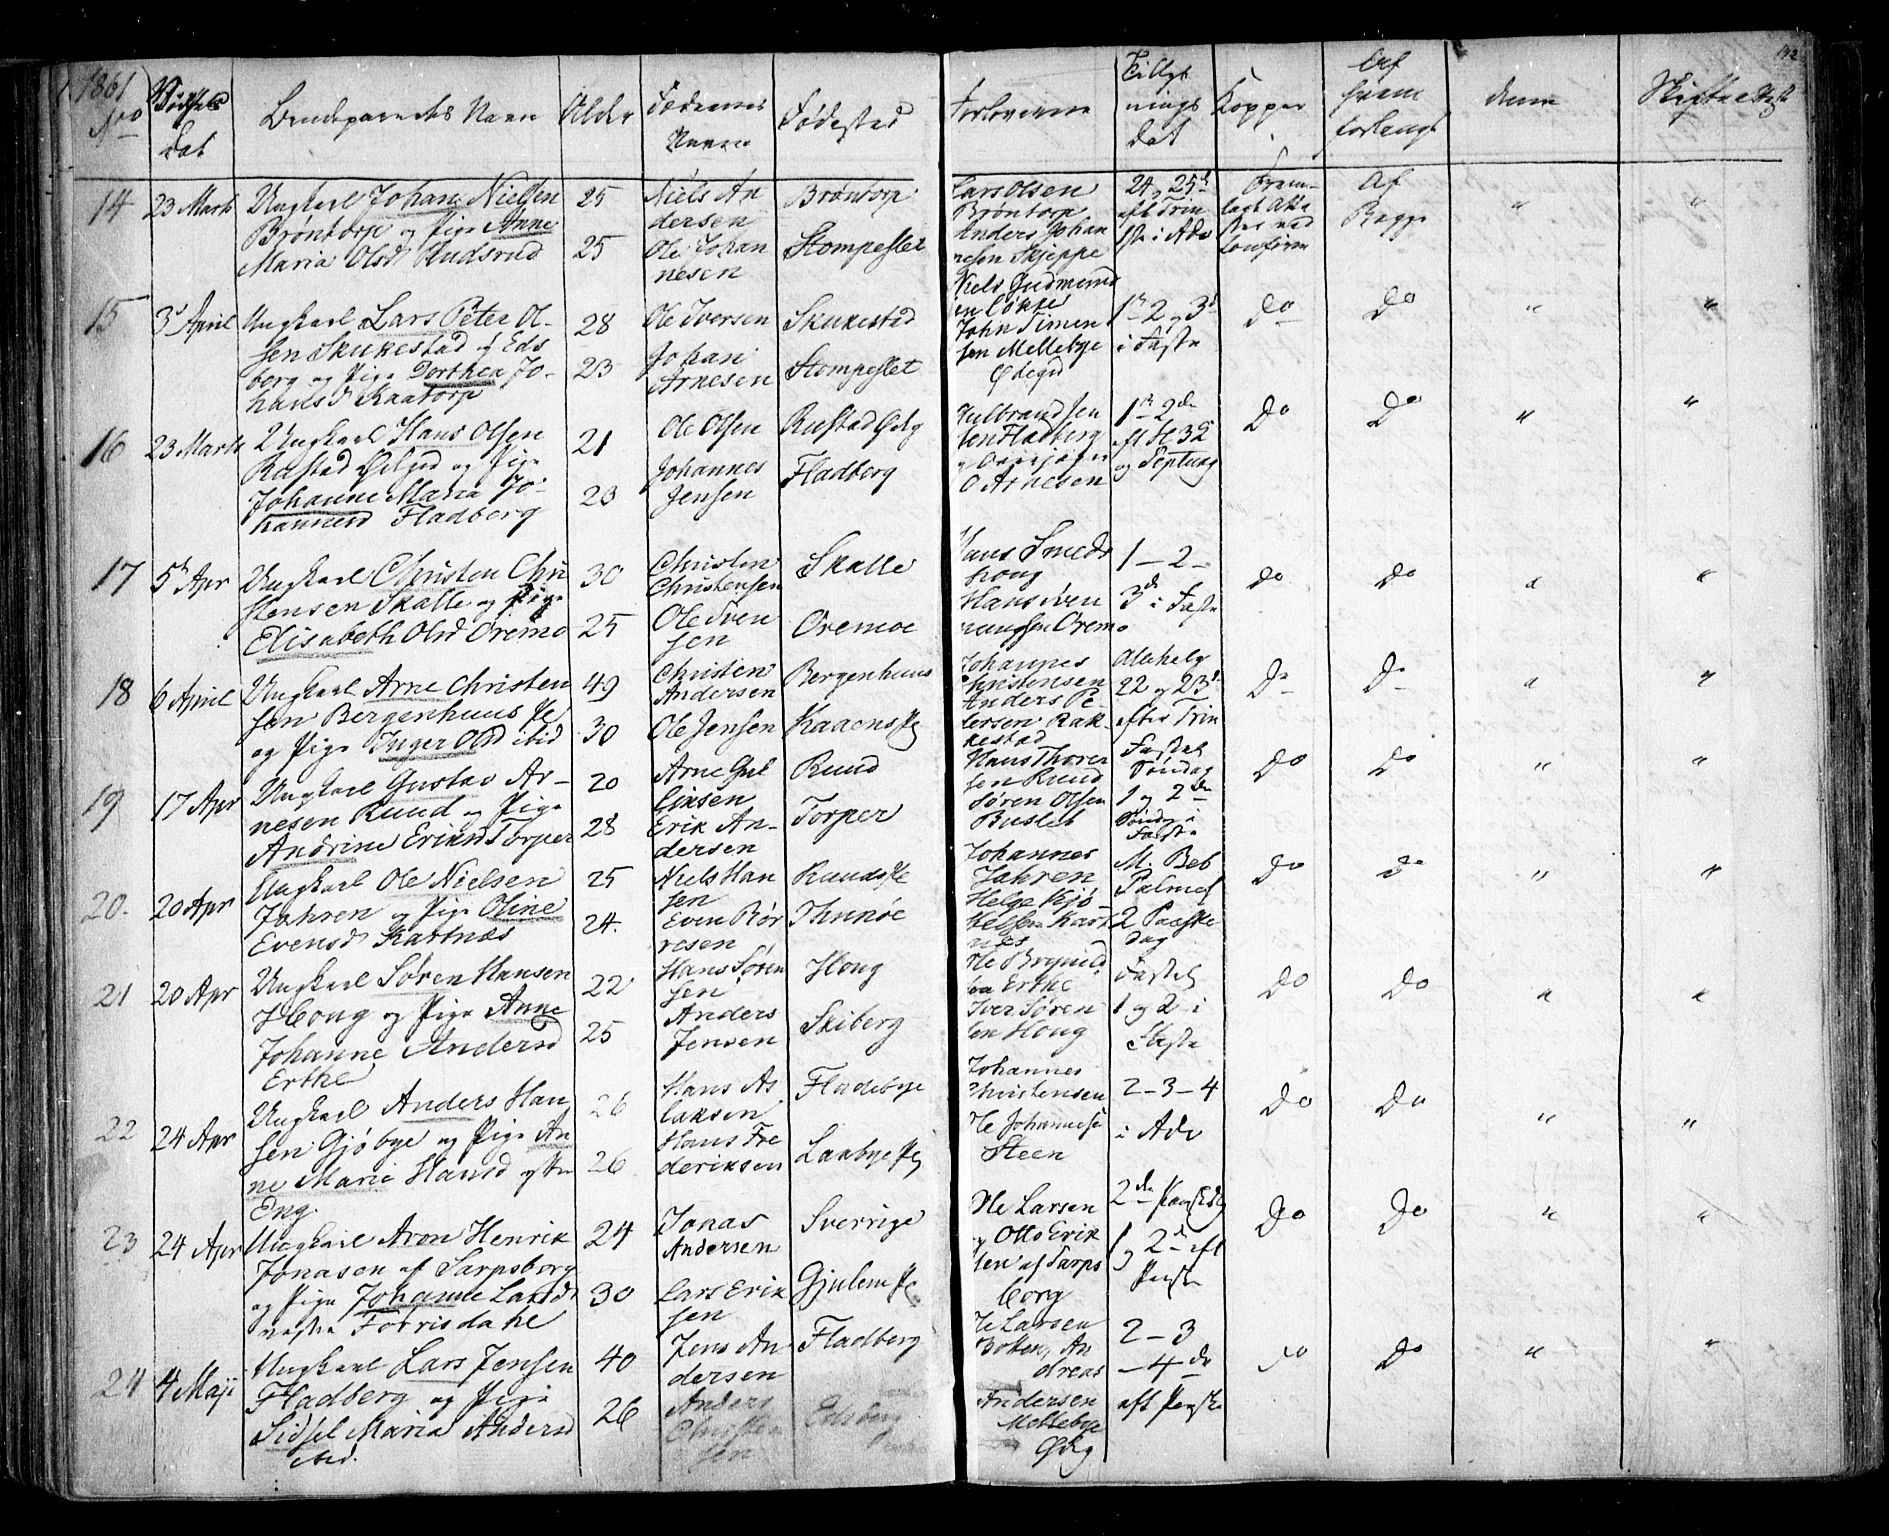 1861
No
Vielses
Dat
Brudeparrets Navn
Alder
Fædrenes
Navne
Fødested
Forloverne
Tillys
nings
Dat
Kopper
Af
hvem
forlangt
142
14
23 Marts
Ungkarl Johan Nielsen
Brøntorp og Pige Anne
Maria Olsd Hudsrud
25
25
Niels An
dersen
Ole Johan
nesen
Brøntorp
Stompeslet
Lars Olsen
Brøntorp
Anders Johan
nesen Skjeppe
24 og 25d
eft Trin
i Adv
Af
Begge
"
"
15
3 April
Ungkarl Lars Peter Ol-
sen Skukestad af Eds
berg og Pige Dorthea Jo-
hansd Kaatorp
28
23
Ole Iversen
Johan
Arnesen
Skukestad
Stompeslet
Niels Gudmund
sen Løkke
John Simen
sen Mellebye
Ødegd
1 2 og 3d
i Faste
Do
Do
"
"
16
23 Marts
Ungkarl Hans Olsen
Rustad Ødegd og Pige
Johanne Maria Jo-
hannesd Fladberg
21
23
Ole Olsen
Johannes
Jensen
Rustad Ødg
Fladberg
Hulbrand Jen
sen Fladberg
O Arnesen
1 2de
eft H 3 K
og Septuag
Do
Do
"
"
17
5 Apr
Ungkarl Christen Chri
stensen Skalle og Pige
Elisabeth Olsd Øremo
30
25
Christen
Christensen
Ole Iver
sen
Skalle
Oremoe
Hans Smeds
houg
Hans Iven
Orem
1 - 2 -
3de i Faste
Do
Do
"
"
18
6 April
Ungkarl Arne Christen
sen Bergenhuus Pe
og Pige Inger Olsd ibid
49
30
Christen
Andersen
Ole Jensen
Bergenhuus
Kaaens Pe
Johannes
Christensen
Anders Pe-
tersen Rak-
kestad
Allehelg
22 og 23d
efter Trin
Do
Do
"
"
19
17 Apr
Ungkarl Gustav Ar-
nesen Ruud og Pige
Andrine Eriksd Torper
20
28
Arne Gul
liksen
Erik An-
dersen
Ruud
Torper
Hans Thore
sen Ruud
Søren Olsen
Buslet
Fastel
Søndag
1 og 2den
Sønd i
Faste
Do
Do
"
"
20.
20 Apr
Ungkarl Ole Nielsen
Jahren og Pige Oline
Evensd Kartnæs
25
24.
Niels Han
sen
Even Bør
resen
Ruuds Pe
Thunøe
Johannes
Jahren
Helge Kjø-
kelsen Kart
næs
M. Beb
Palmes
2 Paaske
dag
Do
Do
"
"
21
20 Apr
Ungkarl Søren Hansen
Houg og Pige Anne
Johanne Andersd
Erthe
22
25
Hans Søren
sen
Anders
Jensen
Houg
Skiberg
Ole Brynild
sen Erthe
Iver Søren
sen Houg
Fastel
1 og 2 i
Faste
Do
Do
"
"
22
24 Apr
Ungkarl Anders Han
sen Gjøbye og Pige An
ne Marie Hansd østre
Eng.
26
26
Hans As
laksen
Hans Fre
deriksen
Fladebye
Laabye Pe
Johannes
Christensen
Ole Johannese
Steen
2 - 3 - 4
i Adv
Do
Do
"
"
23
24 Apr
Ungkarl Aron Henrik
Jonasen af Sarpsborg
og Pige Johanne Larsdr
nestre Forrisdahl
24
30
Jonas
Andersen
Lars Erik
sen
Sverrige
Gjulem Pe
Ole Larsen
og Otto Erik
sen af Sarps
borg
2de Paaskedg
1 og 2de eft
Paaske
Do
Do
"
"
24
4 Maji
Ungkarl Lars Jensen
Fladberg og Pige
Sidsel Maria Andersd
ibid.
40
26
Jens An
dersen
Anders
Christen
sen
Fladberg
Edsberg
Ole Larsen
Botten, An
dreas
Andersen
Mellebye
Ødeg
2 - 3
- 4de
eft Paaske
Do
Do
"
"